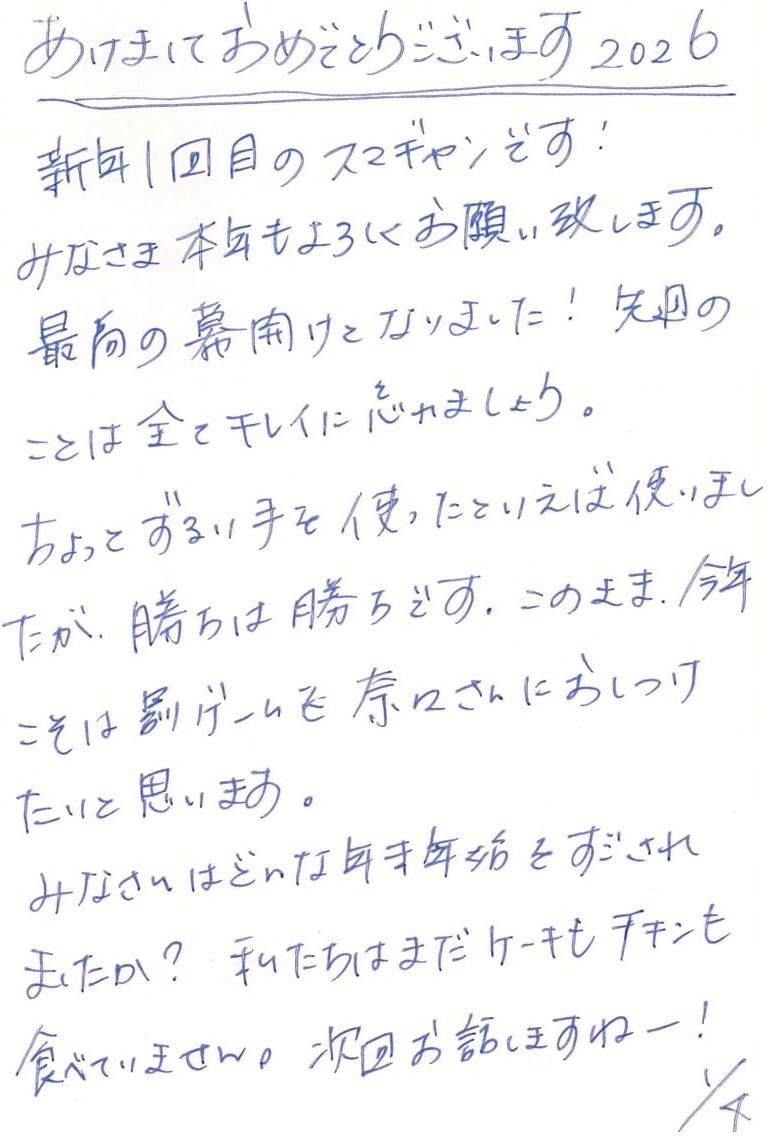 あけましておめでとうございます 2026
新年1回目のスマギャンです!
みなさま本年もよろしくお願い致します。
最高の幕開けとなりました! 先週の
ことは全てキレイに忘れましょう。
ちょっとずるい手を使ったといえば使いまし
たが、勝ちは勝ちです。このまま、今年
こそは罰ゲームを奈口さんにおしつけ
たいと思います。
みなさんはどんな年末年始をすごされ
ましたか? 私たちはまだケーキもチキンも
食べていません。次回お話しますねー!
1/4